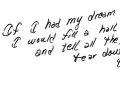 If I had my dream
I would fill a hall
and tell all the
tear down